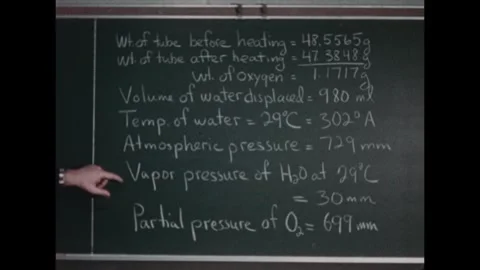 Wt. of tube before heating = 48.5565g
Wt. of tube after heating = 47.3848g
Wt. of oxygen = 1.1717g
Volume of water displaced = 980 ml
Temp. of water = 29°C = 302°A
Atmospheric pressure = 729 mm
Vapor pressure of H₂O at 29°C
= 30 mm
Partial pressure of O₂ = 699 mm